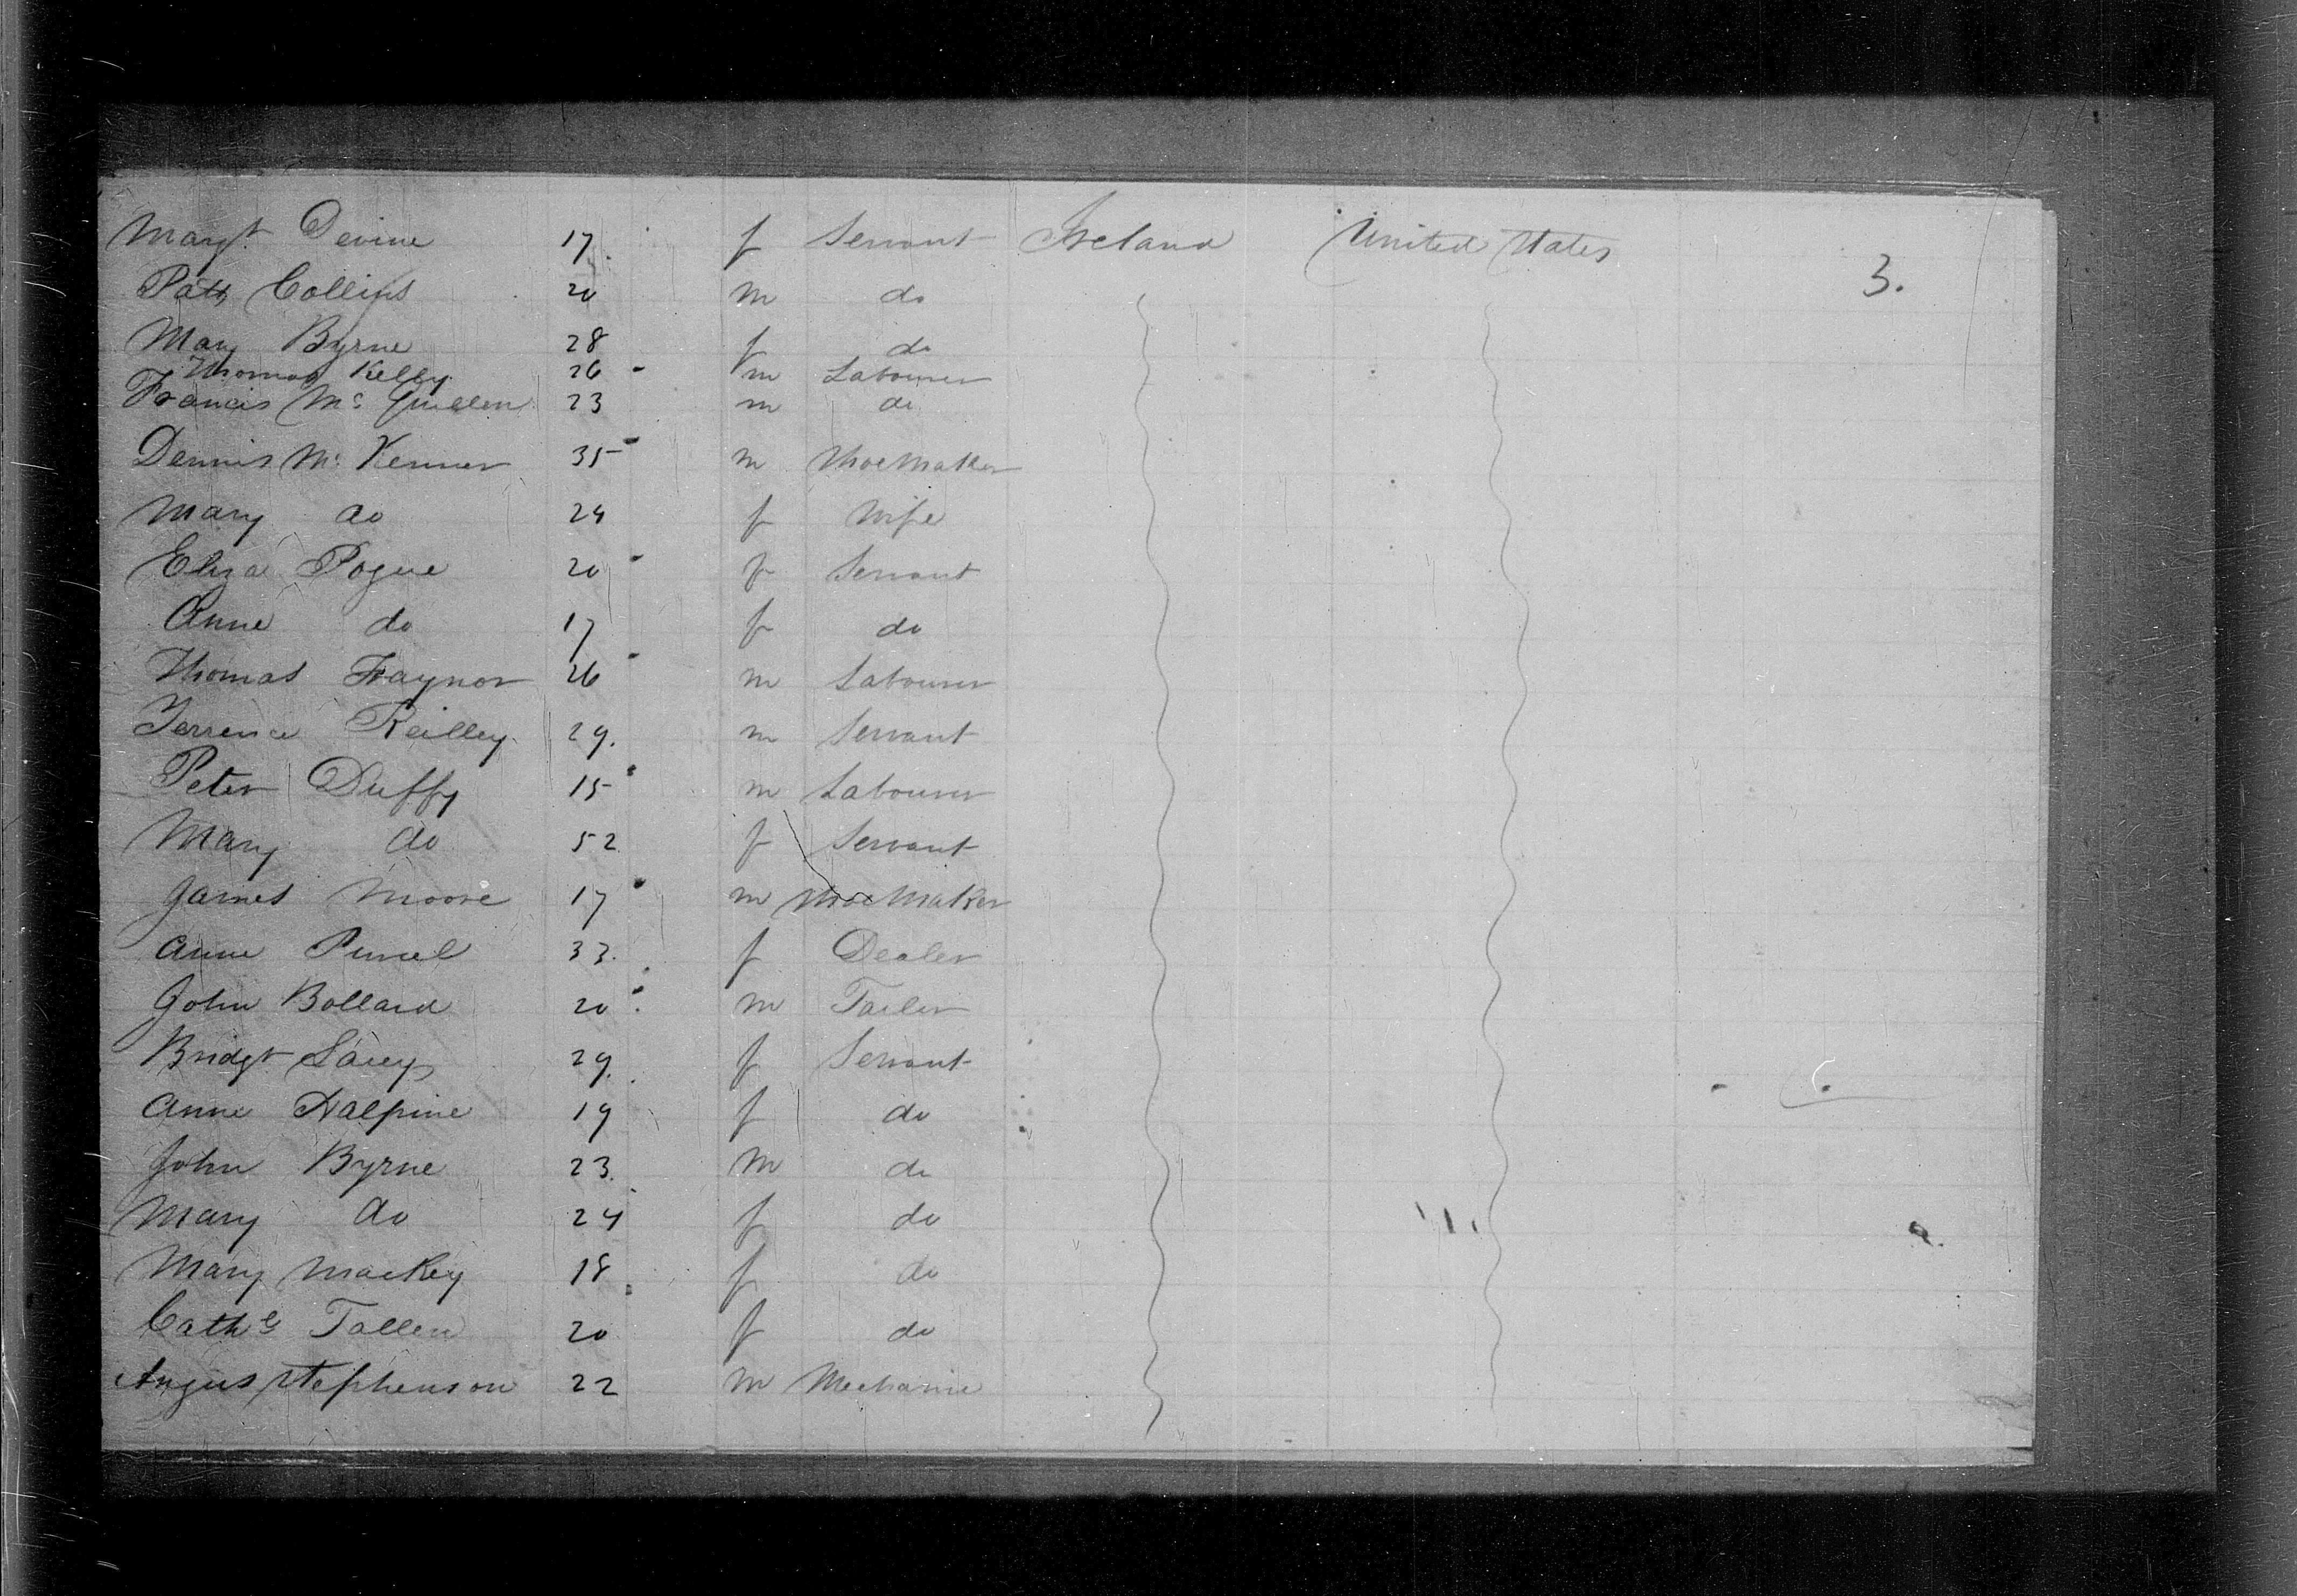 Margt Devine 17 f Servant Ireland United States
3.
Patk Collins 20 m do
Mary Byrne 28 f do
Thomas Kelly 26 m Labourer
Francis Mc Quillen 23 m do
Dennis Mc Kenner 35 m Shoemaker
Mary do 24 f Wife
Eliza Pogue 20 f Servant
Anne do 17 f do
Thomas Traynor 26 m Labourer
Terrence Reilley 29. m Servant
Peter Duffy 15 m Labourer
Mary do 52 f Servant
James Moore 17 m Shoemaker
Anne Purcel 33. f Dealer
John Bollard 20 m Tailer
Bridgt Lacey 29. f Servant
Anne Halpine 19 f do
John Byrne 23. m do
Mary do 24 f do
Mary Mackey 18 f do
Cathe Tallen 20 f do
Angus Stephenson 22 m Mechanic